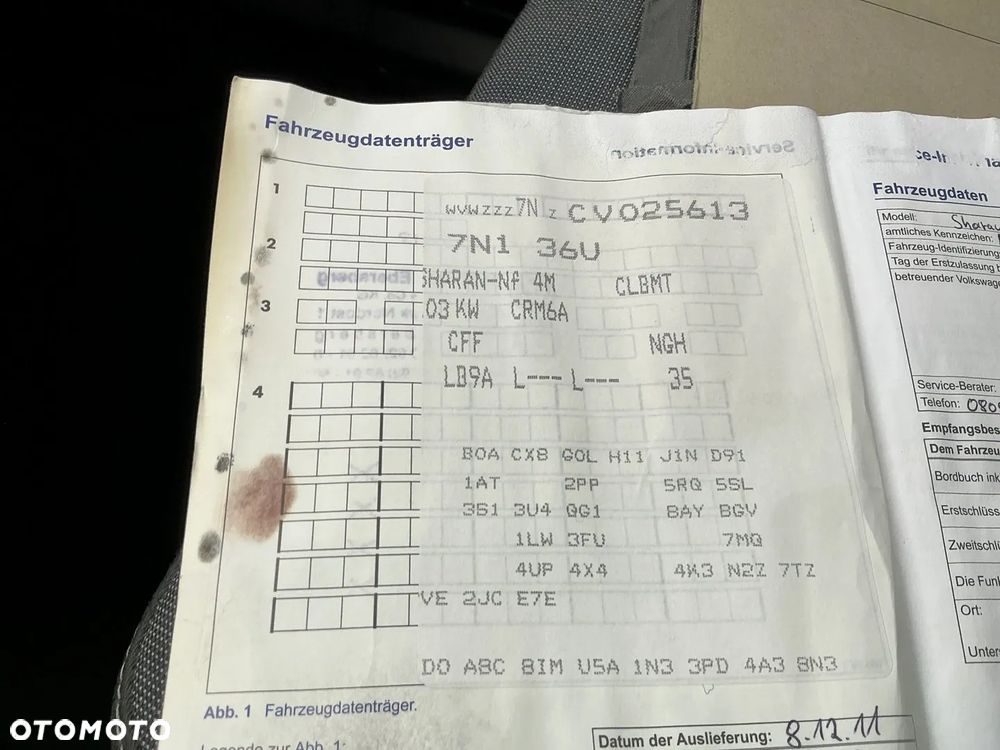 Fahrzeugdatenträger
Service-Information
1
WVWZZZ7N Z CV025613
2
7N1 36U
SHARAN-Nf 4M CLBMT
3
.03 KW CRM6A
CFF NGH
LB9A L--- L--- 35
4
BOA CX8 GOL H11 J1N D91
1AT 2PP 5RQ 5SL
3S1 3U4 QG1 BAY BGV
1LW 3FU 7MQ
4UP 4X4 4K3 N2Z 7TZ
VE 2JC E7E
DO A8C 8IM U5A 1N3 3PD 4A3 8N3
Abb. 1 Fahrzeugdatenträger.
Legende zur Abb. 1:
Datum der Auslieferung: 8.12.11
Fahrzeugdaten
Modell: Shara
amtliches Kennzeichen:
Fahrzeug-Identifizierung
Tag der Erstzulassung
betreuender Volkswage
Service-Berater:
Telefon: 080
Empfangsbes
Dem Fahrzeu
Bordbuch ink
Erstschlüss
Zweitschlü
Die Funk
Ort:
Unter
OTOMOTO